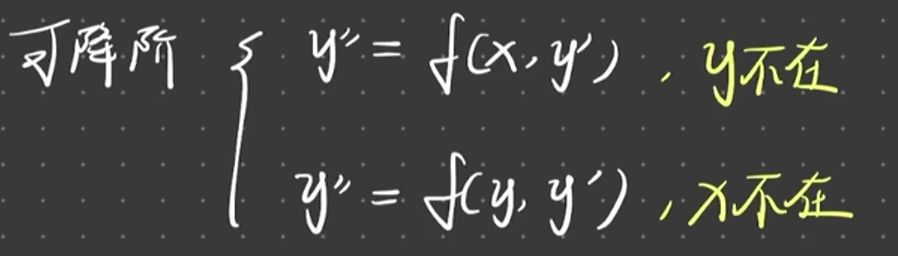 可降阶 { y″ = f(x, y′) , y不在
y″ = f(y, y′) , x不在